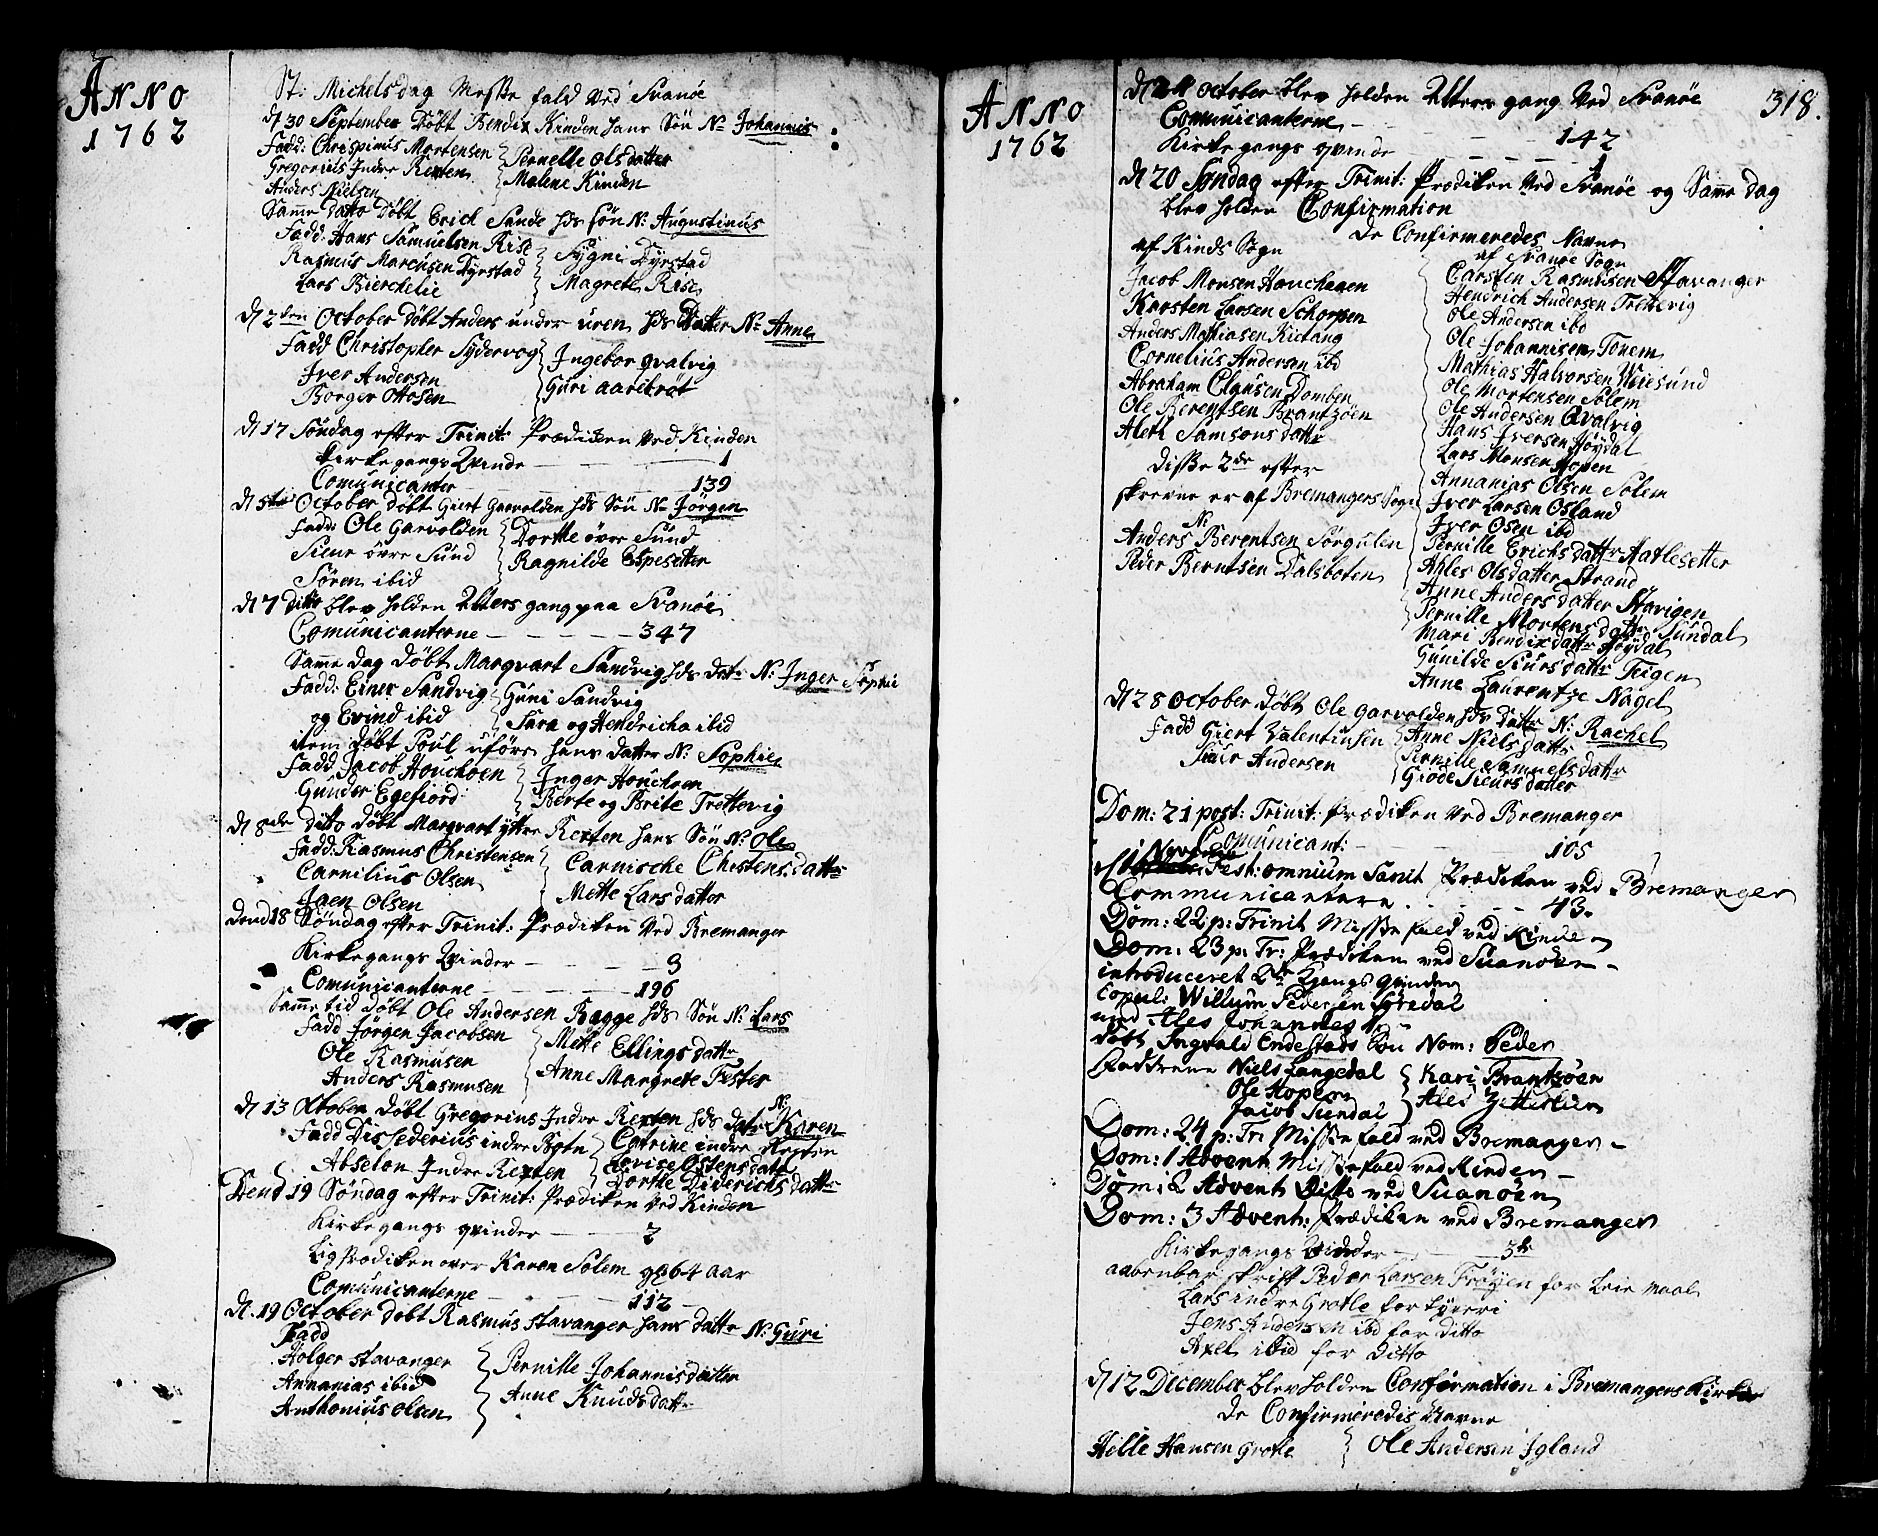 ANNO
1762
St: Michelsdag Messe fald ved Svanöe
d 30 September Döbt Bendix Kinden hans Sön N: Johannis
Fadd: Chrispinus Mortensen
Gregorius Indre Rexten
Anders Nielsen
Pernelle olsdatter
Malene Kinden
Samme datto Döbt Erich Sande hds sön N: Augustinus
Fadd: Hans Samuelsen Rise
Rasmus Marcusen Dyrstad
Lars Bierchelie
Sygni Dyrstad
Magrete Rise
d 2den October Döbt Anders under uren hds Datter N: Anne
Fadd Christopher Sydervog
Iver Andersen
Borger Ottosen
Ingebor qvalvig
Guri aaribröt
d 17 Söndag efter Trinit: Prædiken ved Kinden
Kirkegangs Qvinde 1
Comunicanter 139
d 5te October Döbt Giert Garvolden hds Sön N: Jörgen
Fadd: Ole Garvolden
Siur övre Sund
Sören ibid
Dorthe övre Sund
Ragnilde Espesetter
d 7 Ditto blev holden Altersgang paa Svanöe
Comunicanterne 347
Samme Dag Döbt Marqvart Sandvig hds dat: N: Inger Sophie
Fadd: Einer Sandvig
og Evind ibid
Guni Sandvig
Sara og Hendricha ibid
item Döbt Poul uföre hans datter N: Sophie
Fadd Jacob Houchoen
Gunder Egefiord
Inger Houchoen
Berte og Brite Trettevig
d 8de ditto döbt Marqvart ytre Rexten hans Sön N: Ole
Fadd: Rasmus Christensen
Carnilius Olsen
Jaen Olsen
Carnische Christens:datter
Mette Larsdatter
Dend 18 Söndag efter Trinit: Prædiken ved Bremanger
Kirkegangs Qvinder 3
Comunicanterne 196
Samme tid Döbt Ole Andersen Rægge hds Sön N: Lars
Fadd Jörgen Jacobsen
Ole Rasmusen
Anders Rasmusen
Mette Ellingsdatter
Anne Margrete Fester
d 13 October Döbt Gregorius Indre Rexten hds datr N: Karen
Fadd Dissederius indre Botn
Abselon Indre Rexten
Catrine indre Rexten
Lovise Ostensdatter
Dorthe Diderichsdatter
Dend 19 Söndag efter Trinit: Prædiken ved Kinden
Kirkegangs qvinder 2
Ligprædiken over Karen Solem 64 aar
Comunicanterne 112
d. 19 October döbt Rasmus stavanger hans datter N: Guri
Fadd
Holger stavanger
Annanias ibid
Anthonius olsen
Pernille Johannisdatter
Anne Knudsdatr
ANNO
1762
318.
October blev holden Altersgang ved Svanöe
Comunicanterne 142
Kirkegangs qvinde 1
d 20 Söndag efter Trinit: Prædiken ved Svanöe og Samme dag
blev holden Confirmation
De Confirmeredes Navne
af Kinds Sogn
Jacob Monsen Houchagen
Karsten Larsen Schorpen
Anders Mathiasen Kietang
Cornelius Andersen ibd
Abraham Clausen Domben
Ole Berentsen Brantzöen
Aleth Samsonsdatter
Disse 2de efter
skrevne er af Bremangers Sogn
N:
Anders Berentsen Sörgulen
Peder Berntsen Dalsboten
af Svanöe Sogn
Carsten Rasmusen Stavanger
Hendrich Andersen Trettevig
Ole Andersen ibd
Ole Johannisen Tonem
Mathias Halvorsen Weiesund
Ole Mortensen Solem
Ole Andersen Qvalvig
Hans Iversen Höydal
Lars Monsen Hopen
Annanias Olsen Solem
Iver Larsen Osland
Iver Osen ibd
Pernille Erichsdatter Hatlesetter
Ahles Olsdatter Strand
Anne Andersdatter Stavigen
Pernille Mortensdatr Sundal
Mari Bendixdatr Höydal
Gunilde Siursdatr Teigen
Anne Laurentze Nagel
d 28 October Döbt Ole Garvolden hds datr N: Rachel
Fadd Giert Valentinsen
Siur Andersen
Anne Nielsdatter
Pernille Samuelsdatter
Giöde Siursdatter
Dom: 21 post: Trinit: Prædiken ved Bremanger
Comunicant: 105
1 November Fest: omnium Sanct Prædiken ved Bremanger
Communicantere 43.
Dom: 22 p: Trinit Missefald ved Kinden
Dom: 23 p: Tr: Prædiken ved Suanöen
introduceret 2de Kgangs Qvinder
Copul: Willum Pedersen
med Ales Johannes
döbt Ingvald Endestads Sön Nom: Peder
Faddrene Niels Langedal
Ole Hopen
Jacob Sundal
Kari Brantzöen
Ales
Dom: 24 p: Tr: Missefald ved Bremanger
Dom: 1 Advent Missefald ved Kinden
Dom: 2 Advent Ditto ved Suanöen
Dom: 3 Advent: Prædiken ved Bremanger
Kirkegangs Qvinder 3de
aabenbar skrift Peder Larsen Fröyen for Leiermaal
Lars indre Grotle for tyveri
Jens Andersen ibd for ditto
Axel ibid for ditto
d 12 December blev holden Confirmation i Bremangers Kirke
De Confirmeredis Navne
Hille Hansen Grotle
Ole Andersen Igland